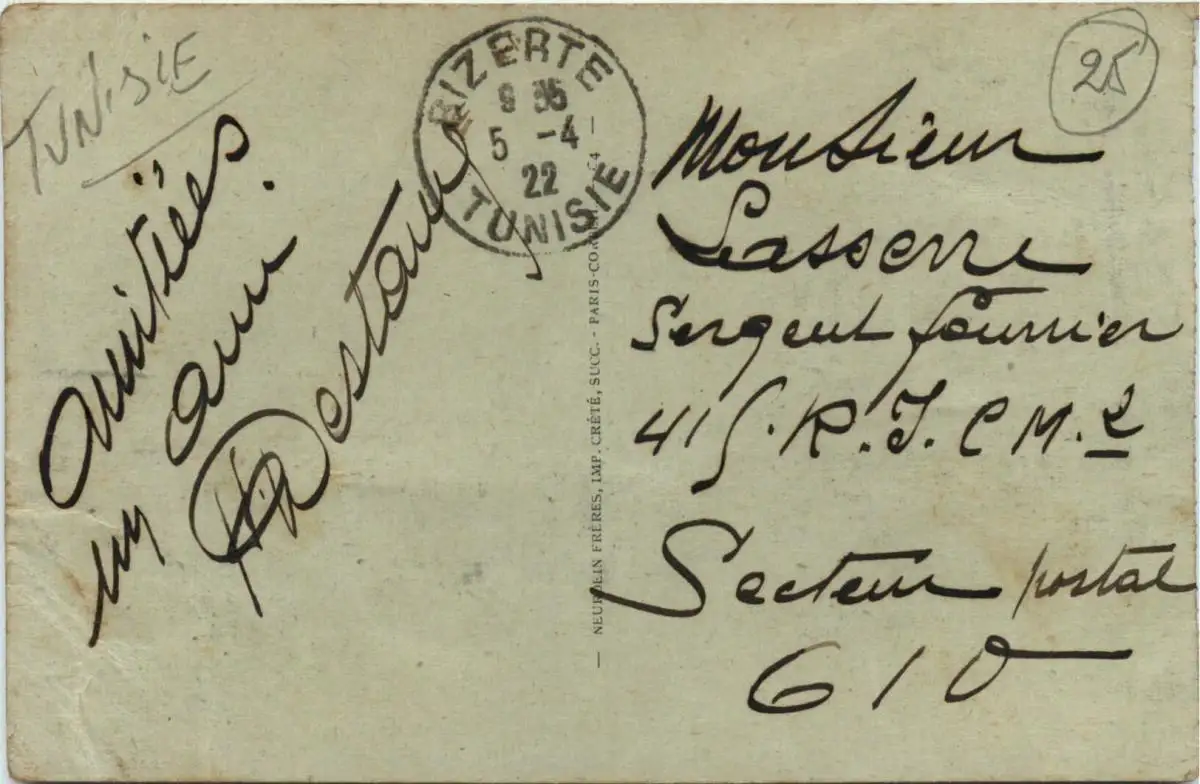 TUNISIE
amitiées
un ami.
Destau
BIZERTE
9 35
5 -4
22
TUNISIE
— NEURDEIN FRÈRES, IMP. CRÉTÉ, SUCC. - PARIS-CORBEIL —
25
Monsieur
Lasserre
Sergent fourrier
415. R. I. C M. 2
Secteur postal
610